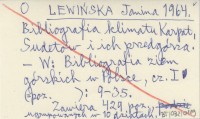 O LEWIŃSKA Janina 1964.
Bibliografia klimatu Karpat,
Sudetów i ich przedgórza.
– W: Bibliografia ziem
górskich w Polsce, cz. I
(poz. ): 9-35.
Zawiera 429 poz.,
w 10 działach,